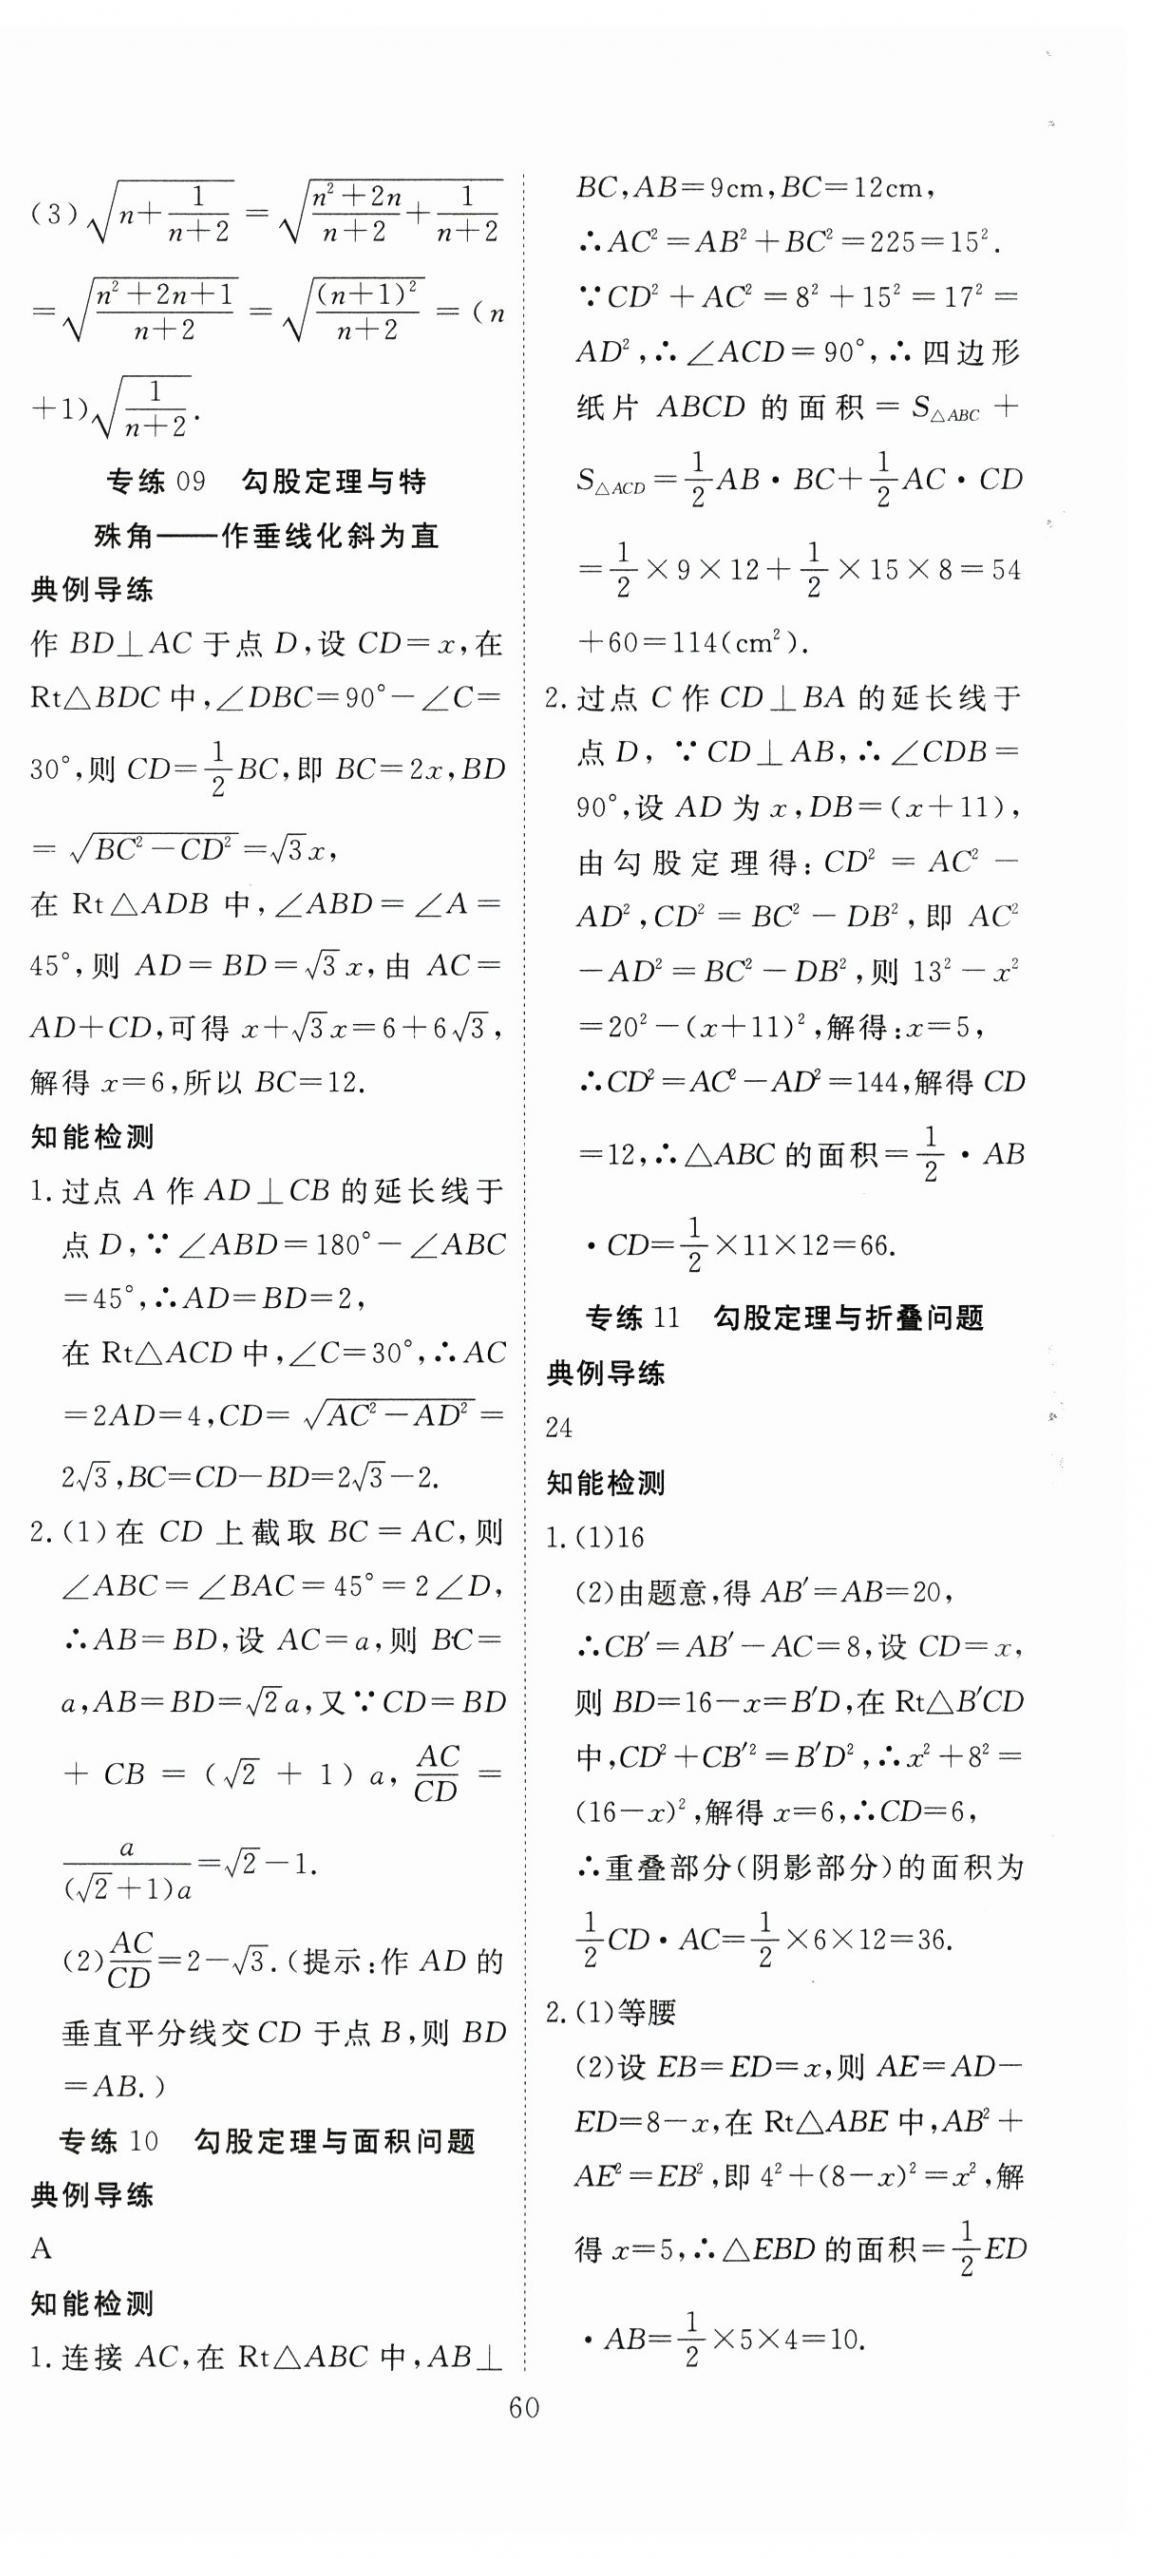 (3)√(n+1/(n+2)) = √((n²+2n)/(n+2)+1/(n+2))
=√((n²+2n+1)/(n+2)) = √((n+1)²/(n+2)) =(n
+1)√(1/(n+2)).
专练 09 勾股定理与特
殊角——作垂线化斜为直
典例导练
作 BD⊥AC 于点 D,设 CD=x,在
Rt△BDC 中,∠DBC=90°-∠C=
30°,则 CD=1/2BC,即 BC=2x,BD
=√(BC²-CD²)=√3x,
在 Rt△ADB 中,∠ABD=∠A=
45°,则 AD=BD=√3x,由 AC=
AD+CD,可得 x+√3x=6+6√3,
解得 x=6,所以 BC=12.
知能检测
1.过点 A 作 AD⊥CB 的延长线于
点 D,∵∠ABD=180°-∠ABC
=45°,∴AD=BD=2,
在 Rt△ACD 中,∠C=30°,∴AC
=2AD=4,CD=√(AC²-AD²)=
2√3,BC=CD-BD=2√3-2.
2.(1)在 CD 上截取 BC=AC,则
∠ABC=∠BAC=45°=2∠D,
∴AB=BD,设 AC=a,则 BC=
a,AB=BD=√2a,又∵CD=BD
+CB=(√2+1)a,AC/CD=
a/((√2+1)a)=√2-1.
(2)AC/CD=2-√3.(提示:作 AD 的
垂直平分线交 CD 于点 B,则 BD
=AB.)
专练 10 勾股定理与面积问题
典例导练
A
知能检测
1.连接 AC,在 Rt△ABC 中,AB⊥
BC,AB=9cm,BC=12cm,
∴AC²=AB²+BC²=225=15².
∵CD²+AC²=8²+15²=17²=
AD²,∴∠ACD=90°,∴四边形
纸片 ABCD 的面积=S△ABC+
S△ACD=1/2AB·BC+1/2AC·CD
=1/2×9×12+1/2×15×8=54
+60=114(cm²).
2.过点 C 作 CD⊥BA 的延长线于
点 D,∵CD⊥AB,∴∠CDB=
90°,设 AD 为 x,DB=(x+11),
由勾股定理得:CD²=AC²-
AD²,CD²=BC²-DB²,即 AC²
-AD²=BC²-DB²,则 13²-x²
=20²-(x+11)²,解得:x=5,
∴CD²=AC²-AD²=144,解得 CD
=12,∴△ABC 的面积=1/2·AB
·CD=1/2×11×12=66.
专练 11 勾股定理与折叠问题
典例导练
24
知能检测
1.(1)16
(2)由题意,得 AB′=AB=20,
∴CB′=AB′-AC=8,设 CD=x,
则 BD=16-x=B′D,在 Rt△B′CD
中,CD²+CB′²=B′D²,∴x²+8²=
(16-x)²,解得 x=6,∴CD=6,
∴重叠部分(阴影部分)的面积为
1/2CD·AC=1/2×6×12=36.
2.(1)等腰
(2)设 EB=ED=x,则 AE=AD-
ED=8-x,在 Rt△ABE 中,AB²+
AE²=EB²,即 4²+(8-x)²=x²,解
得 x=5,∴△EBD 的面积=1/2ED
·AB=1/2×5×4=10.
60